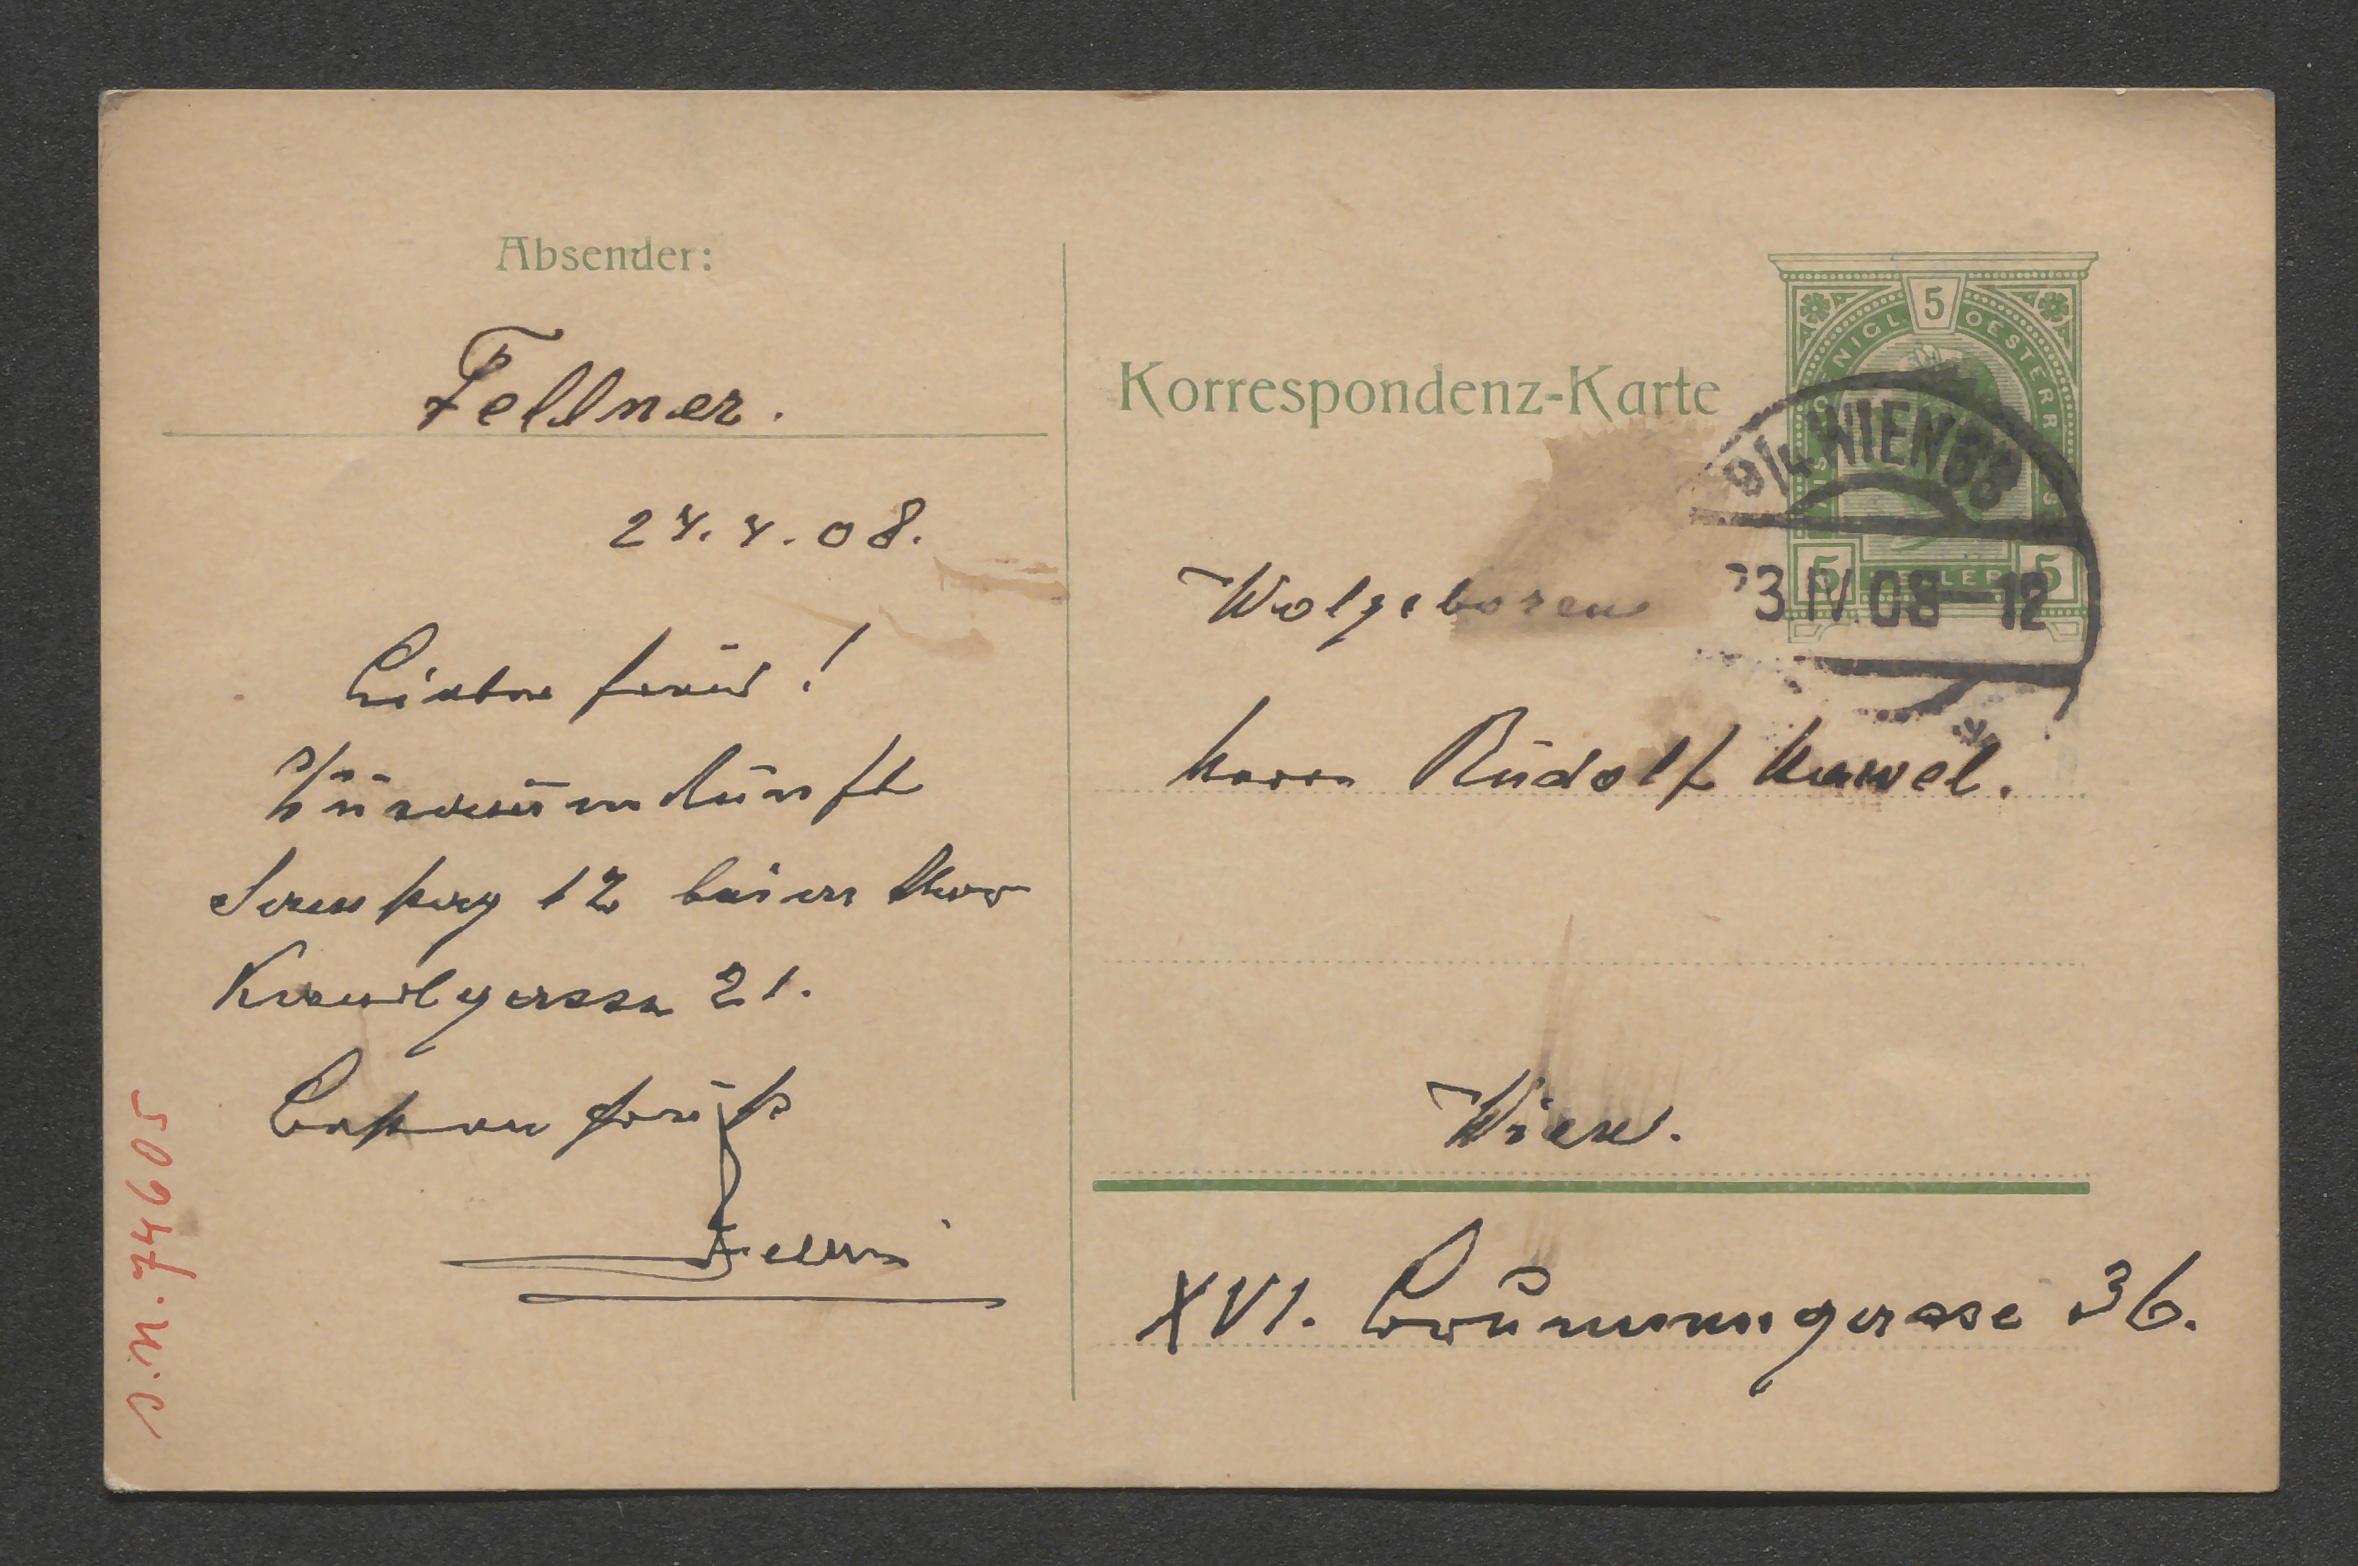 Absender:
Fellner.
24.4.08.
Lieber Freund!
Zusammenkunft
Samstag 12 beim Herr
Kandlgasse 21.
Besten Gruß
Fellner
I.N. 74605
Korrespondenz-Karte
5
NIGL. OESTERR
5 HELLER 5
9/4 WIEN 66
23 IV 08-12
Wolgeboren
Herrn Rudolf Hawel.
Wien.
XVI. Grüllemeiergasse 36.